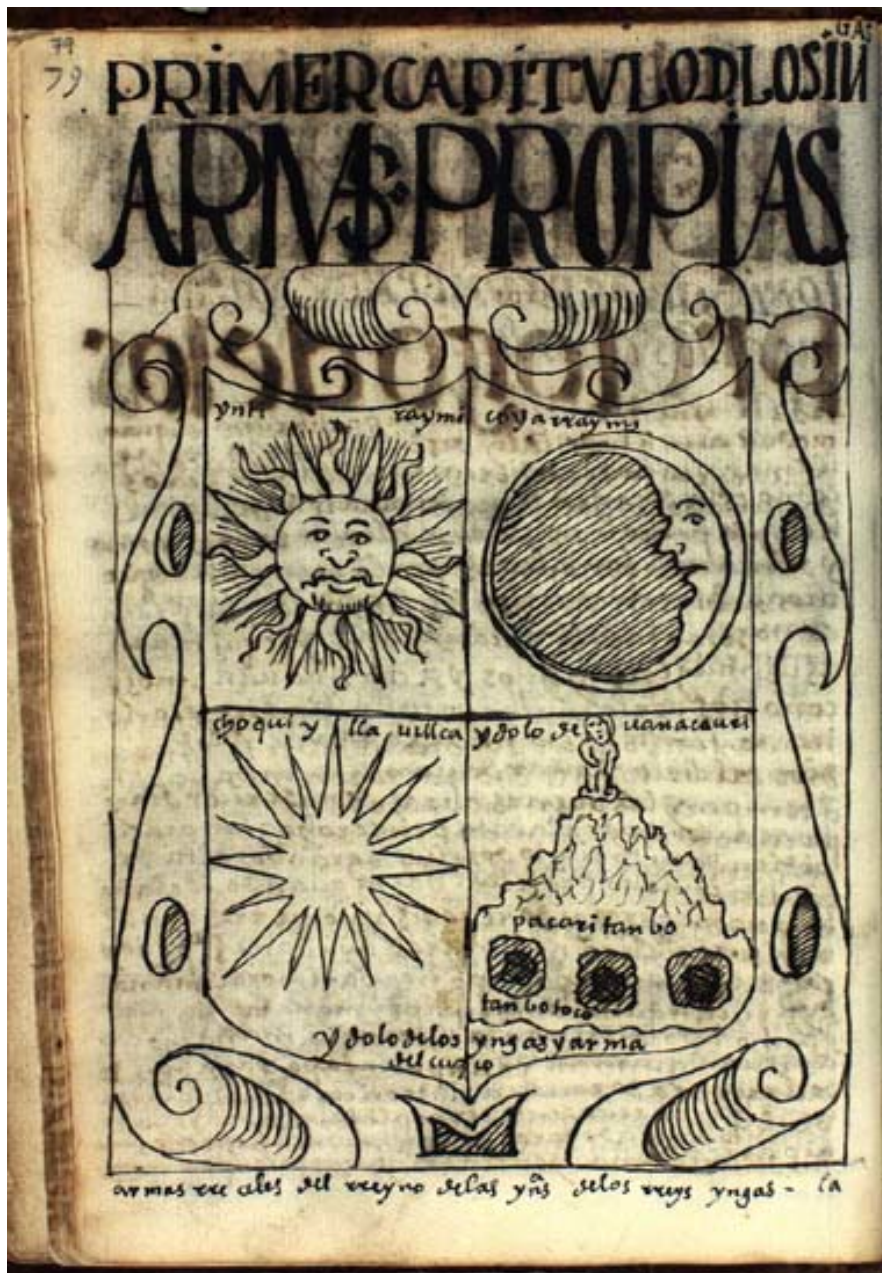 79
79
PRIMER CAPITVLO D LOS IN
GAS
ARMAS PROPIAS
ynti raymi coya rraymi
choqui ylla uillca ydolo de uanacauri
pacari tanbo
tanbo toco
ydolo de los yngas y arma
del cuzco
armas rreales del rreyno de las yn̄as de los rreys yngas - la